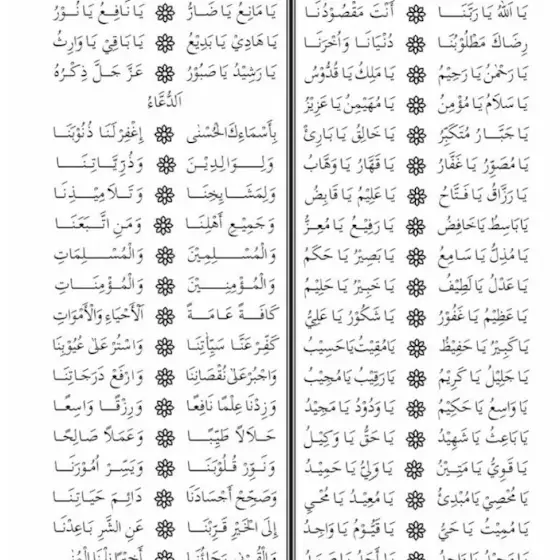 يَا اَللهُ يَا رَبَّنَا ❁ أَنْتَ مَقْصُوْدُنَا
رِضَاكَ مَطْلُوْبُنَا ❁ دُنْيَانَا وَأُخْرَنَا
يَا رَحْمٰنُ يَا رَحِيْمُ ❁ يَا مَلِكُ يَا قُدُّوْسُ
يَا سَلَامُ يَا مُؤْمِنُ ❁ يَا مُهَيْمِنُ يَا عَزِيْزُ
يَا جَبَّارُ مُتَكَبِّرُ ❁ يَا خَالِقُ يَا بَارِئُ
يَا مُصَوِّرُ يَا غَفَّارُ ❁ يَا قَهَّارُ يَا وَهَّابُ
يَا رَزَّاقُ يَا فَتَّاحُ ❁ يَا عَلِيْمُ يَا قَابِضُ
يَابَاسِطُ يَاخَافِضُ ❁ يَا رَفِيْعُ يَا مُعِزُّ
يَا مُذِلُّ يَا سَامِعُ ❁ يَا بَصِيْرُ يَا حَكَمُ
يَا عَدْلُ يَا لَطِيْفُ ❁ يَا خَبِيْرُ يَا حَلِيْمُ
يَا عَظِيْمُ يَا غَفُوْرُ ❁ يَا شَكُوْرُ يَا عَلِيُّ
يَا كَبِيْرُ يَا حَفِيْظُ ❁ يَامُقِيْتُ يَاحَسِيْبُ
يَا جَلِيْلُ يَا كَرِيْمُ ❁ يَا رَقِيْبُ يَا مُجِيْبُ
يَا وَاسِعُ يَا حَكِيْمُ ❁ يَا وَدُوْدُ يَا مَجِيْدُ
يَا بَاعِثُ يَا شَهِيْدُ ❁ يَا حَقُّ يَا وَكِيْلُ
يَا قَوِيُّ يَا مَتِيْنُ ❁ يَا وَلِيُّ يَا حَمِيْدُ
يَا مُحْصِيْ يَا مُبْدِئُ ❁ يَا مُعِيْدُ يَا مُحْيِ
يَا مُمِيْتُ يَا حَيُّ ❁ يَا قَيُّوْمُ يَا وَاحِدُ
يَا مَانِعُ يَا ضَارُّ ❁ يَا نَافِعُ يَا نُوْرُ
يَا هَادِيْ يَا بَدِيْعُ ❁ يَا بَاقِيْ يَا وَارِثُ
يَا رَشِيْدُ يَا صَبُوْرُ ❁ عَزَّ جَلَّ ذِكْرُهُ
اَلدُّعَاءُ
بِأَسْمَاءِكَ الْحُسْنٰى ❁ إِغْفِرْ لَنَا ذُنُوْبَنَا
وَلِوَالِدِيْنَا ❁ وَذُرِّيَّاتِنَا
وَلِمَشَايِخِنَا ❁ وَتَلَامِيْذِنَا
وَجَمِيْعِ أَهْلِنَا ❁ وَمَنِ اتَّبَعَنَا
وَالْمُسْلِمِيْنَ ❁ وَالْمُسْلِمَاتِ
وَالْمُؤْمِنِيْنَ ❁ وَالْمُؤْمِنَاتِ
كَافَةً عَامَةً ❁ اَلْأَحْيَاءِ وَالْأَمْوَاتِ
كَفِّرْ عَنَّا سَيِّآتِنَا ❁ وَاسْتُرْ عَلٰى عُيُوْبِنَا
وَاجْبُرْ عَلٰى نُقْصَانِنَا ❁ وَارْفَعْ دَرَجَاتِنَا
وَزِدْنَا عِلْمًا نَافِعًا ❁ وَرِزْقًا وَاسِعًا
حَلَالًا طَيِّبًا ❁ وَعَمَلًا صَالِحًا
وَنَوِّرْ قُلُوْبَنَا ❁ وَيَسِّرْ اُمُوْرَنَا
وَصَحِّحْ أَجْسَادَنَا ❁ دَائِمَ حَيَاتِنَا
إِلَى الْخَيْرِ قَرِّبْنَا ❁ عَنِ الشَّرِّ بَاعِدْنَا